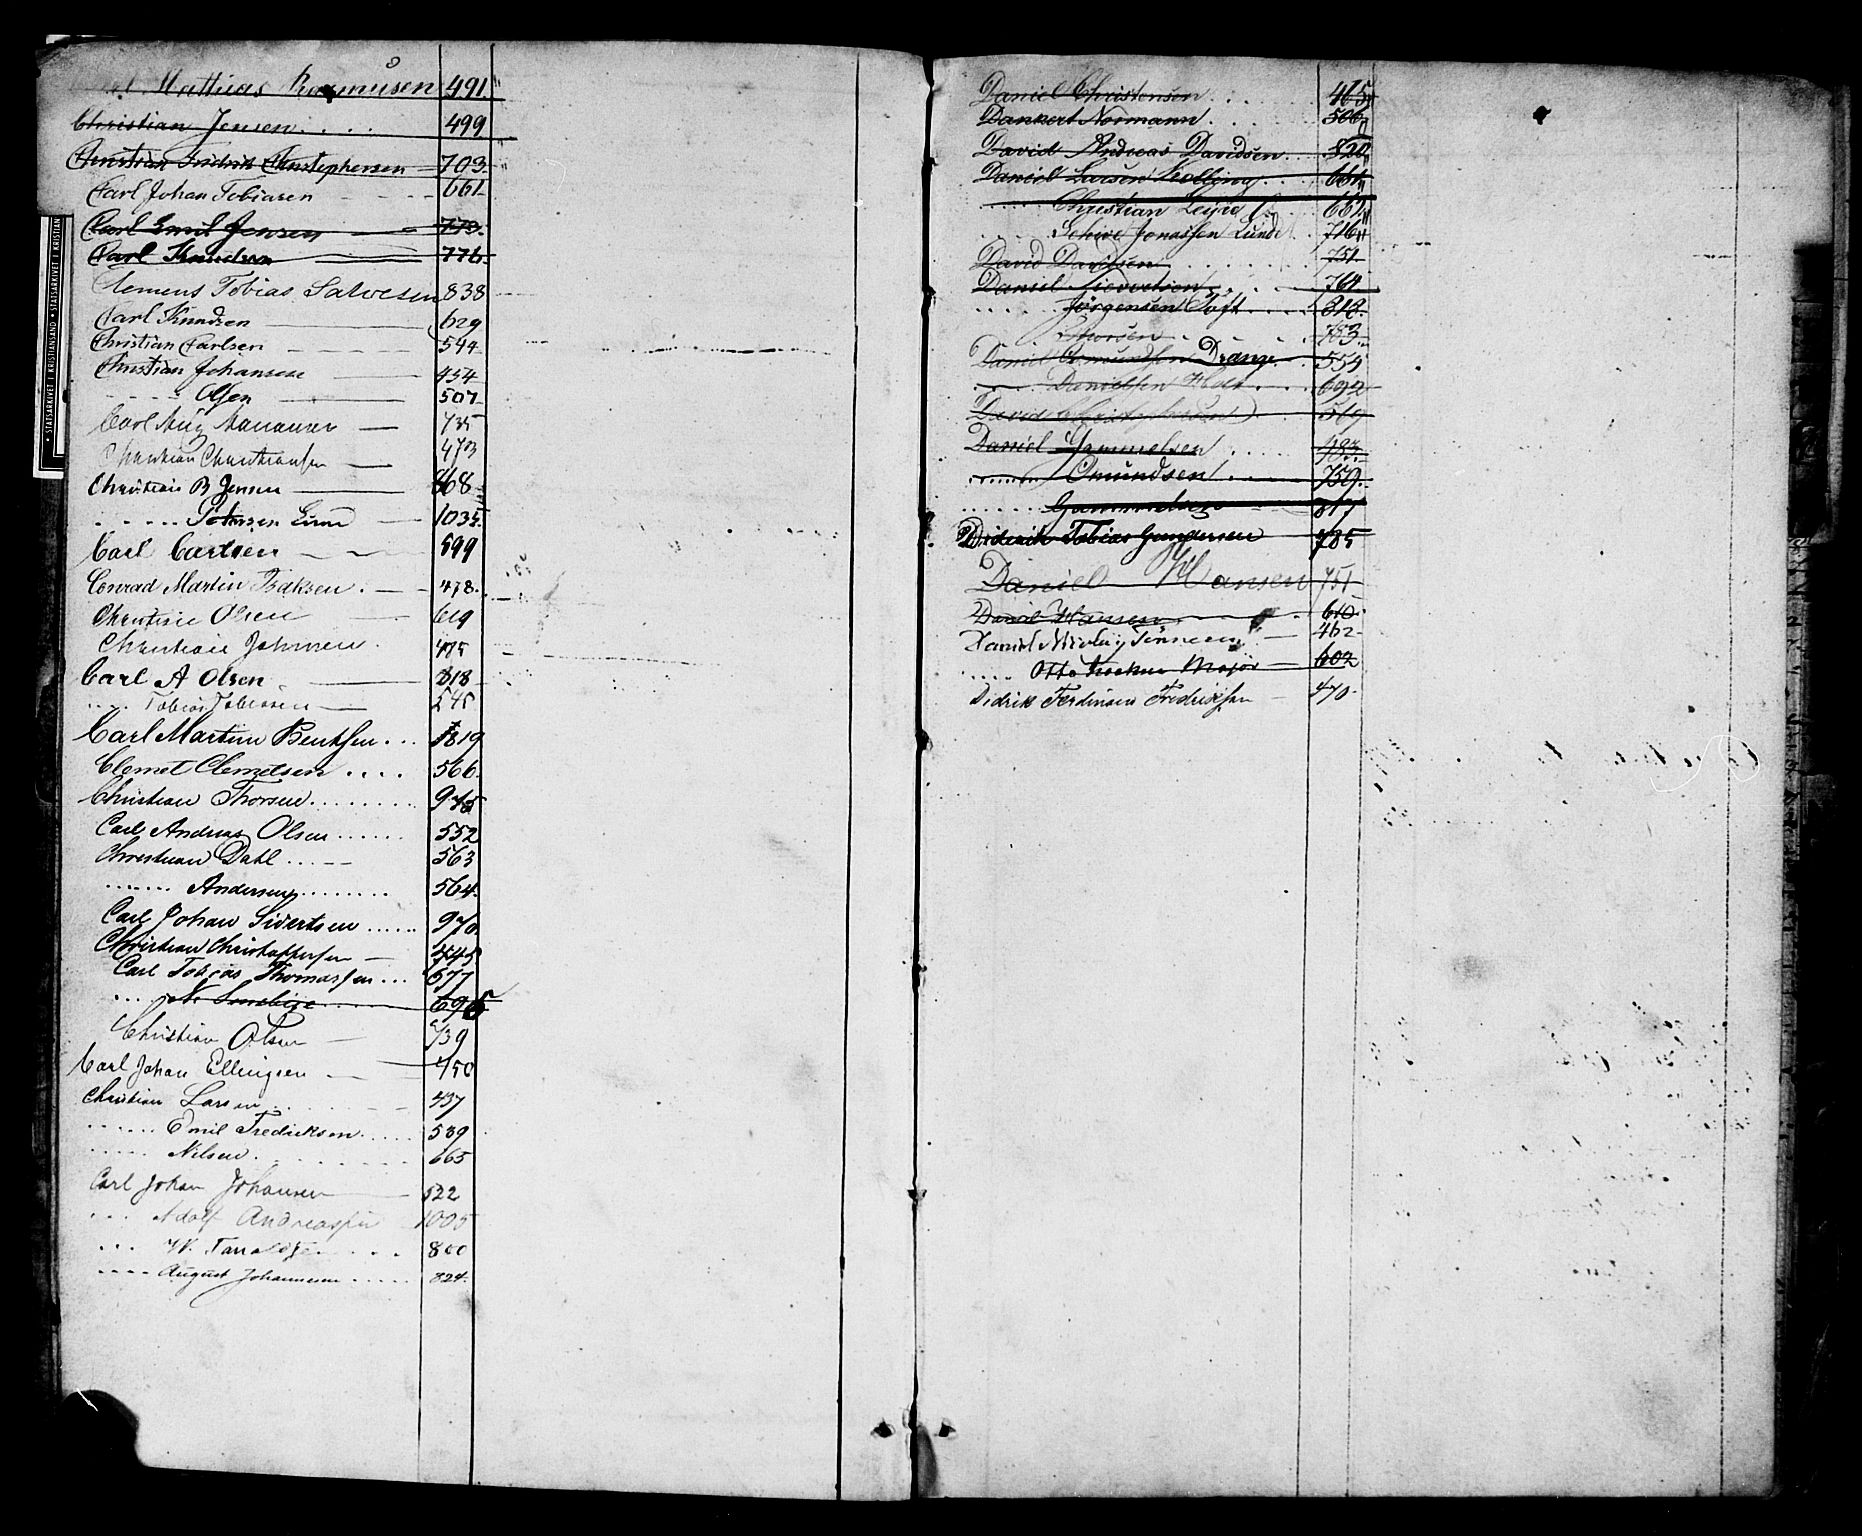 Mathias Rasmusen 491
Christian Jensen.... 499
Christian Fredrik Christophersen 703
Carl Johan Tobiasen 661
Carl Emil Jensen 773
Carl Knudsen 776
Clemens Tobias Salvesen 838
Carl Knudsen 629
Christian Carlsen 544
Christian Johansen 454
..... Olsen 507
Carl Aug 735
Christian Christiansen 473
Christian B Jensen 868
...... Johnsen Lund 1035
Carl Carlsen 599
Conrad Martin Isaksen. 478
Christian Olsen 619
Christian Johnsen. 475
Carl A Olsen 818
.... Tobias Tobiassen 545
Carl Martin Bentsen... 819
Clemet Clemetsen.... 566
Christian Thorsen......... 975
Carl Andreas Olsen...... 552
Christian Dahl..... 563
....... Andersen........ 564
Carl Johan Sivertsen...... 970
Christian Christoffersen 445
Carl Tobias Thomassen... 677
... N. 695
Christian Olsen 739
Carl Johan Ellingsen 450
Christian Larsen 437
...... Emil Fredriksen..... 589
..... Nilsen. 665
Carl Johan Johansen 522
... Adolf Andreassen 1005
... W. Taraldsen 800
.... August Johannesen ..... 824
STATSARKIVET I KRISTIANSAND • STATSARKIVET I KRISTIAN
Daniel Christensen.... 465
Dankert Normann... 506
David Andreas Davidsen... 820
Daniel Larsen Kolling... 661
..... Christian 662
.... Jonassen Lunde. 716
David Davidsen 751
Daniel Sivertsen 764
..... Jørgensen Toft.... 818
Thorsen 783
Daniel Omundsen Drange 559
.... Danielsen Holt.... 692
David 519
Daniel Gammelsen..... 483
...... Omundsen...... 759
...... Gammelsen 817
Didrik Tobias Gundersen 785
Daniel Hansen 751
Daniel Hansen 610
Daniel Nicolay Tønnesen 462
..... Otto Major 602
Didrik Ferdinan Fredriksen 470